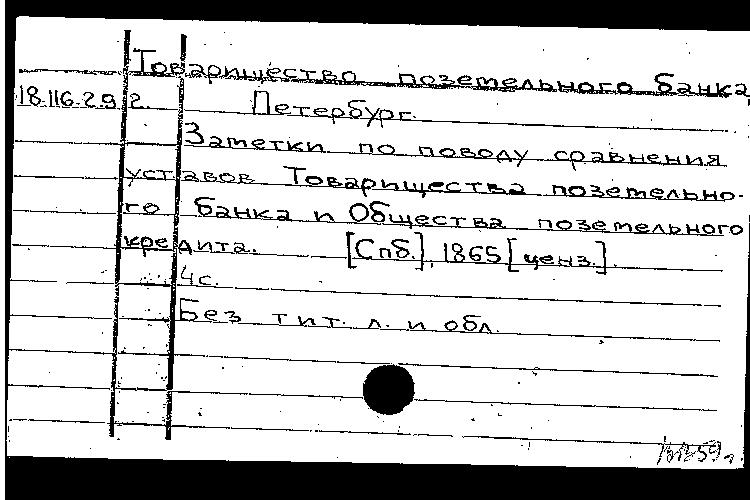 Товарищество поземельного банка
18.116.2.9 г. Петербург.
Заметки по поводу сравнения
уставов Товарищества поземельно-
го банка и Общества поземельного
кредита. [Спб.], 1865 [ценз.].
4 с.
Без тит. л. и обл.